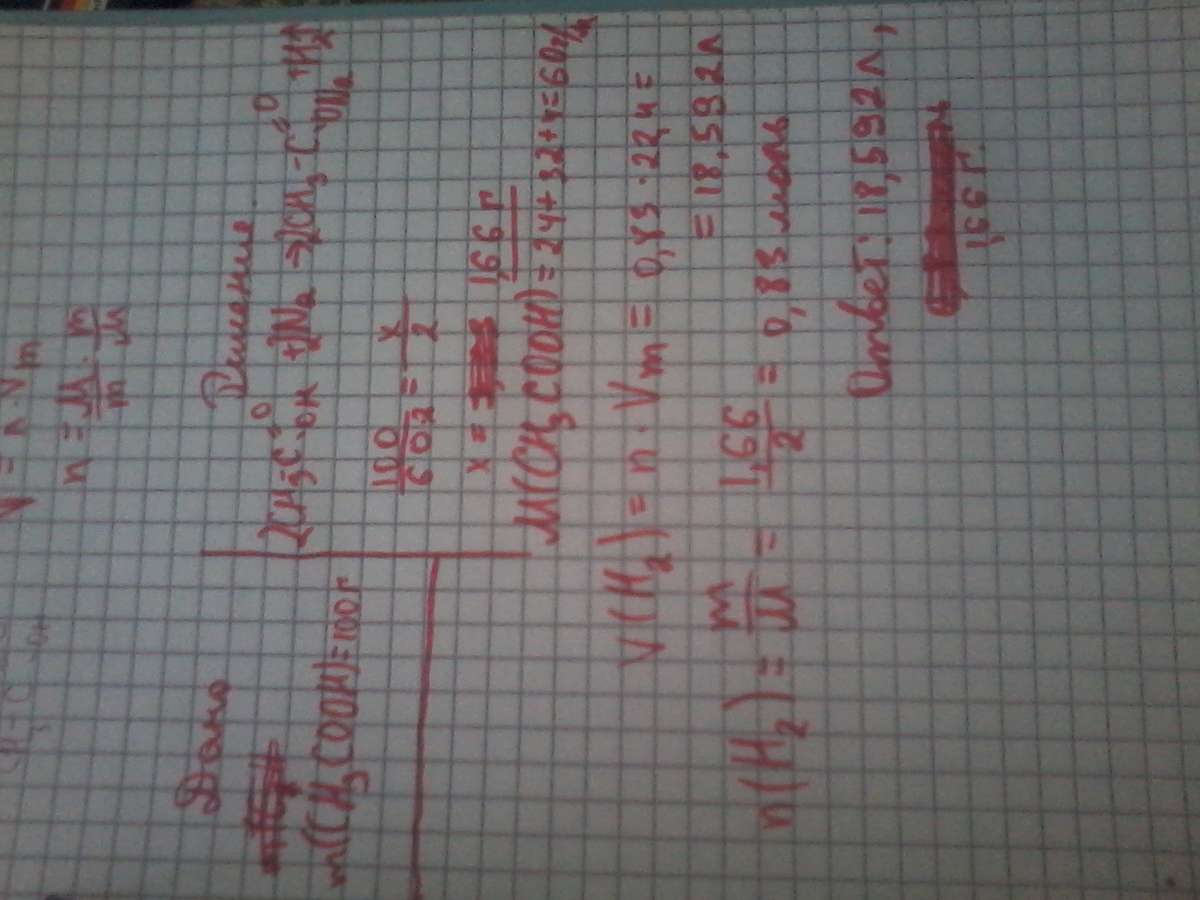 V = n · Vm
n = M/m · m/M
Дано
m(CH₃COOH)=100г
Решение.
2CH₃-C=O-OH +2Na →2CH₃-C=O-ONa +H₂↑
100/60·2 = x/2
x = 1,66 г
M(CH₃COOH)=24+32+4=60г/м
V(H₂)= n · Vm = 0,83 · 22,4 =
= 18,592 л
n(H₂)= m/M = 1,66/2 = 0,83 моль
Ответ: 18,592 л,
1,66 г.